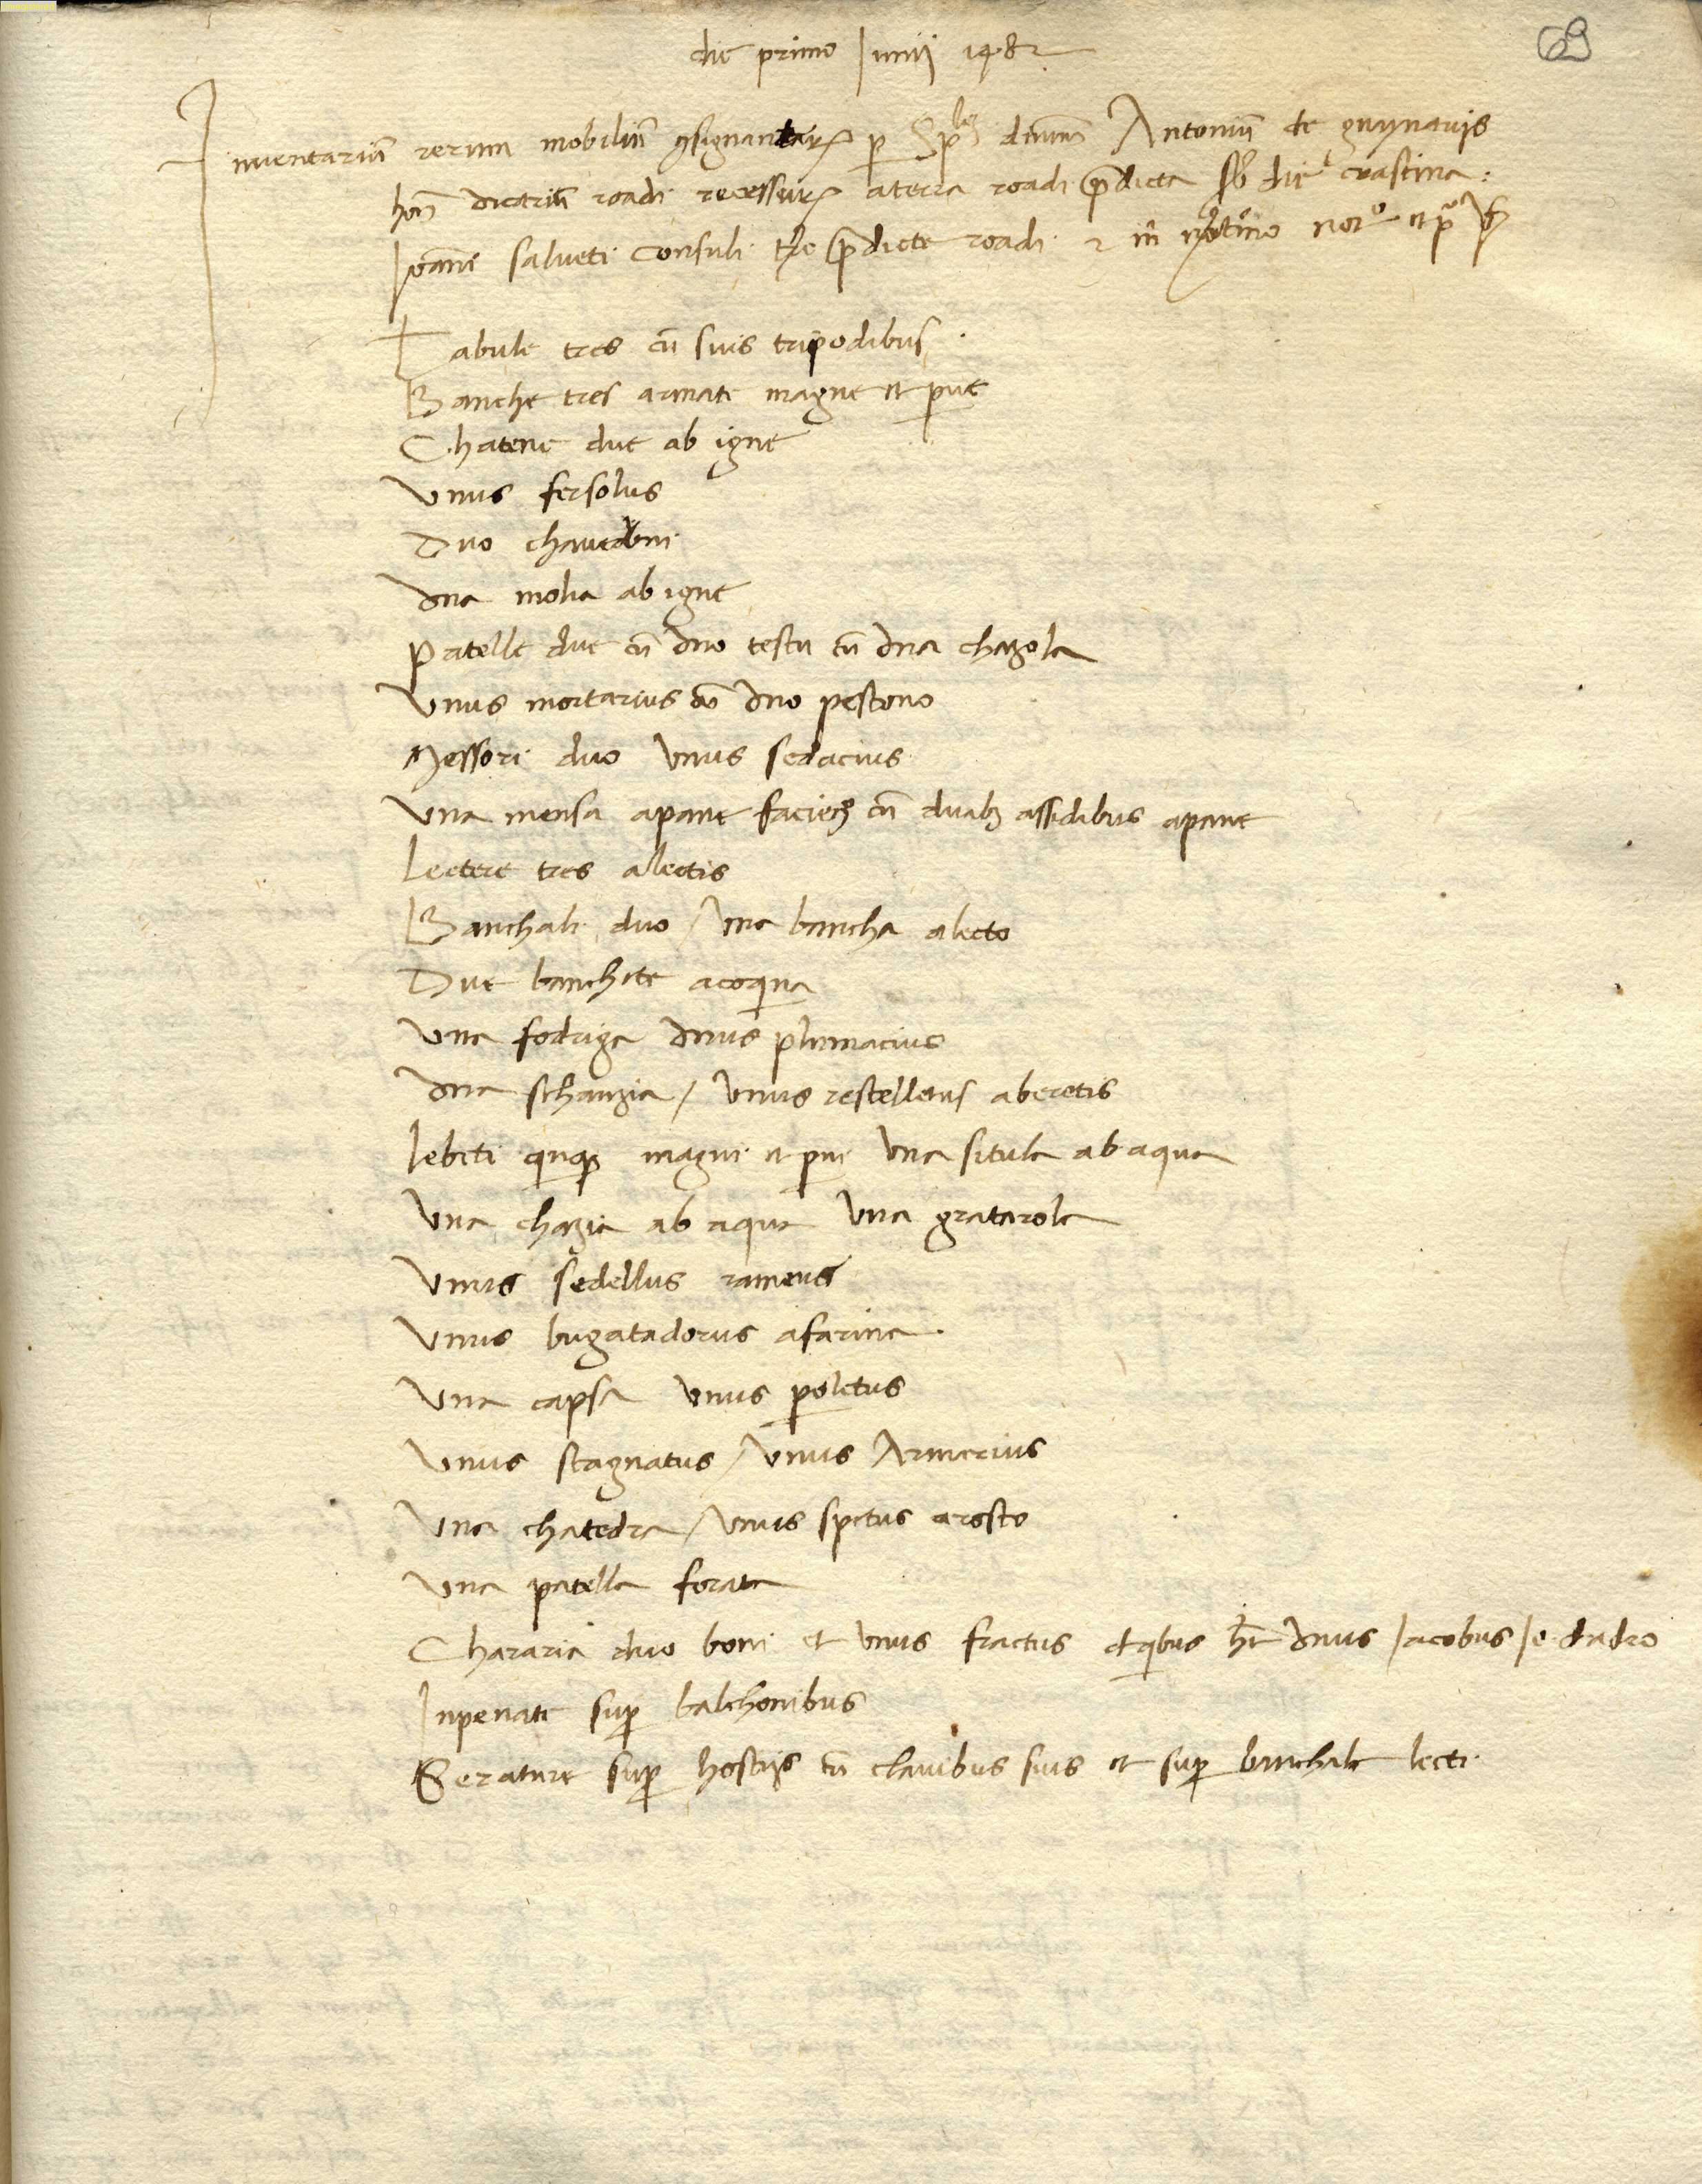 69
die primo Junij 1482
Inuentariũ rerum mobiliũ ꝯsignantarꝝ ꝑ Spłeʒ dnum Antoniũ de
honõ roadi recessurꝝ a terra roadi p̃dicta sb̃ die crastina:
Joanni salueti Consuli tr̃e p̃dicte roadi ⁊ in
Tabule tres cũ suis tripodibus
Banche tres armate magne et parue
Chatene due ab igne
Vnus fersolus
Duo chauedoni
Vna molia ab igne
Patelle due cũ vno testu cũ vna chazola
Vnus mortarius cũ vno pestono
Messori duo Vnus sedacius
Vna mensa apane facieđ cũ duabʒ assidibus apane
Lectere tres alectis
Banchali duo / vna bancha alecto
Due banchete acoqina
Vna fodriga vnus plumacius
Vna schanzia / Vnus restelletus aberetis
Lebeti qinqʒ magni et parui Vna situla ab aqua
Vna chazia ab aqua Vna gratarola
Vnus sedellus rameus
Vnus bugatadorus afarina.
Vna capsa vnus poletus
Vnus stagnatus / Vnus Armerius
Vna chatedra / Vnus spetus arosto
Vna patella forata
Chararia duo boni et vnus fractus de qibus ht̃ vnus Jacobus
Inpenate suꝑ balchonibus
Serature suꝑ hostijs cũ clauibus suis et suꝑ banchale lecti